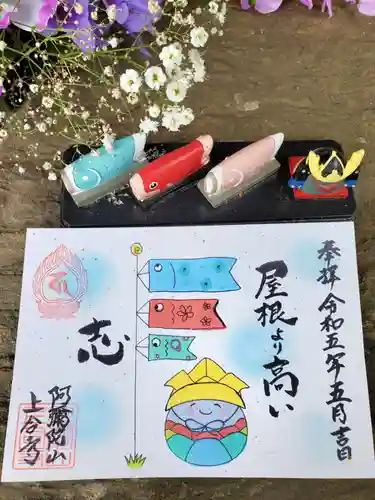 奉拝 令和五年五月吉日
屋根より高い
志
阿彌陀山
上谷寺